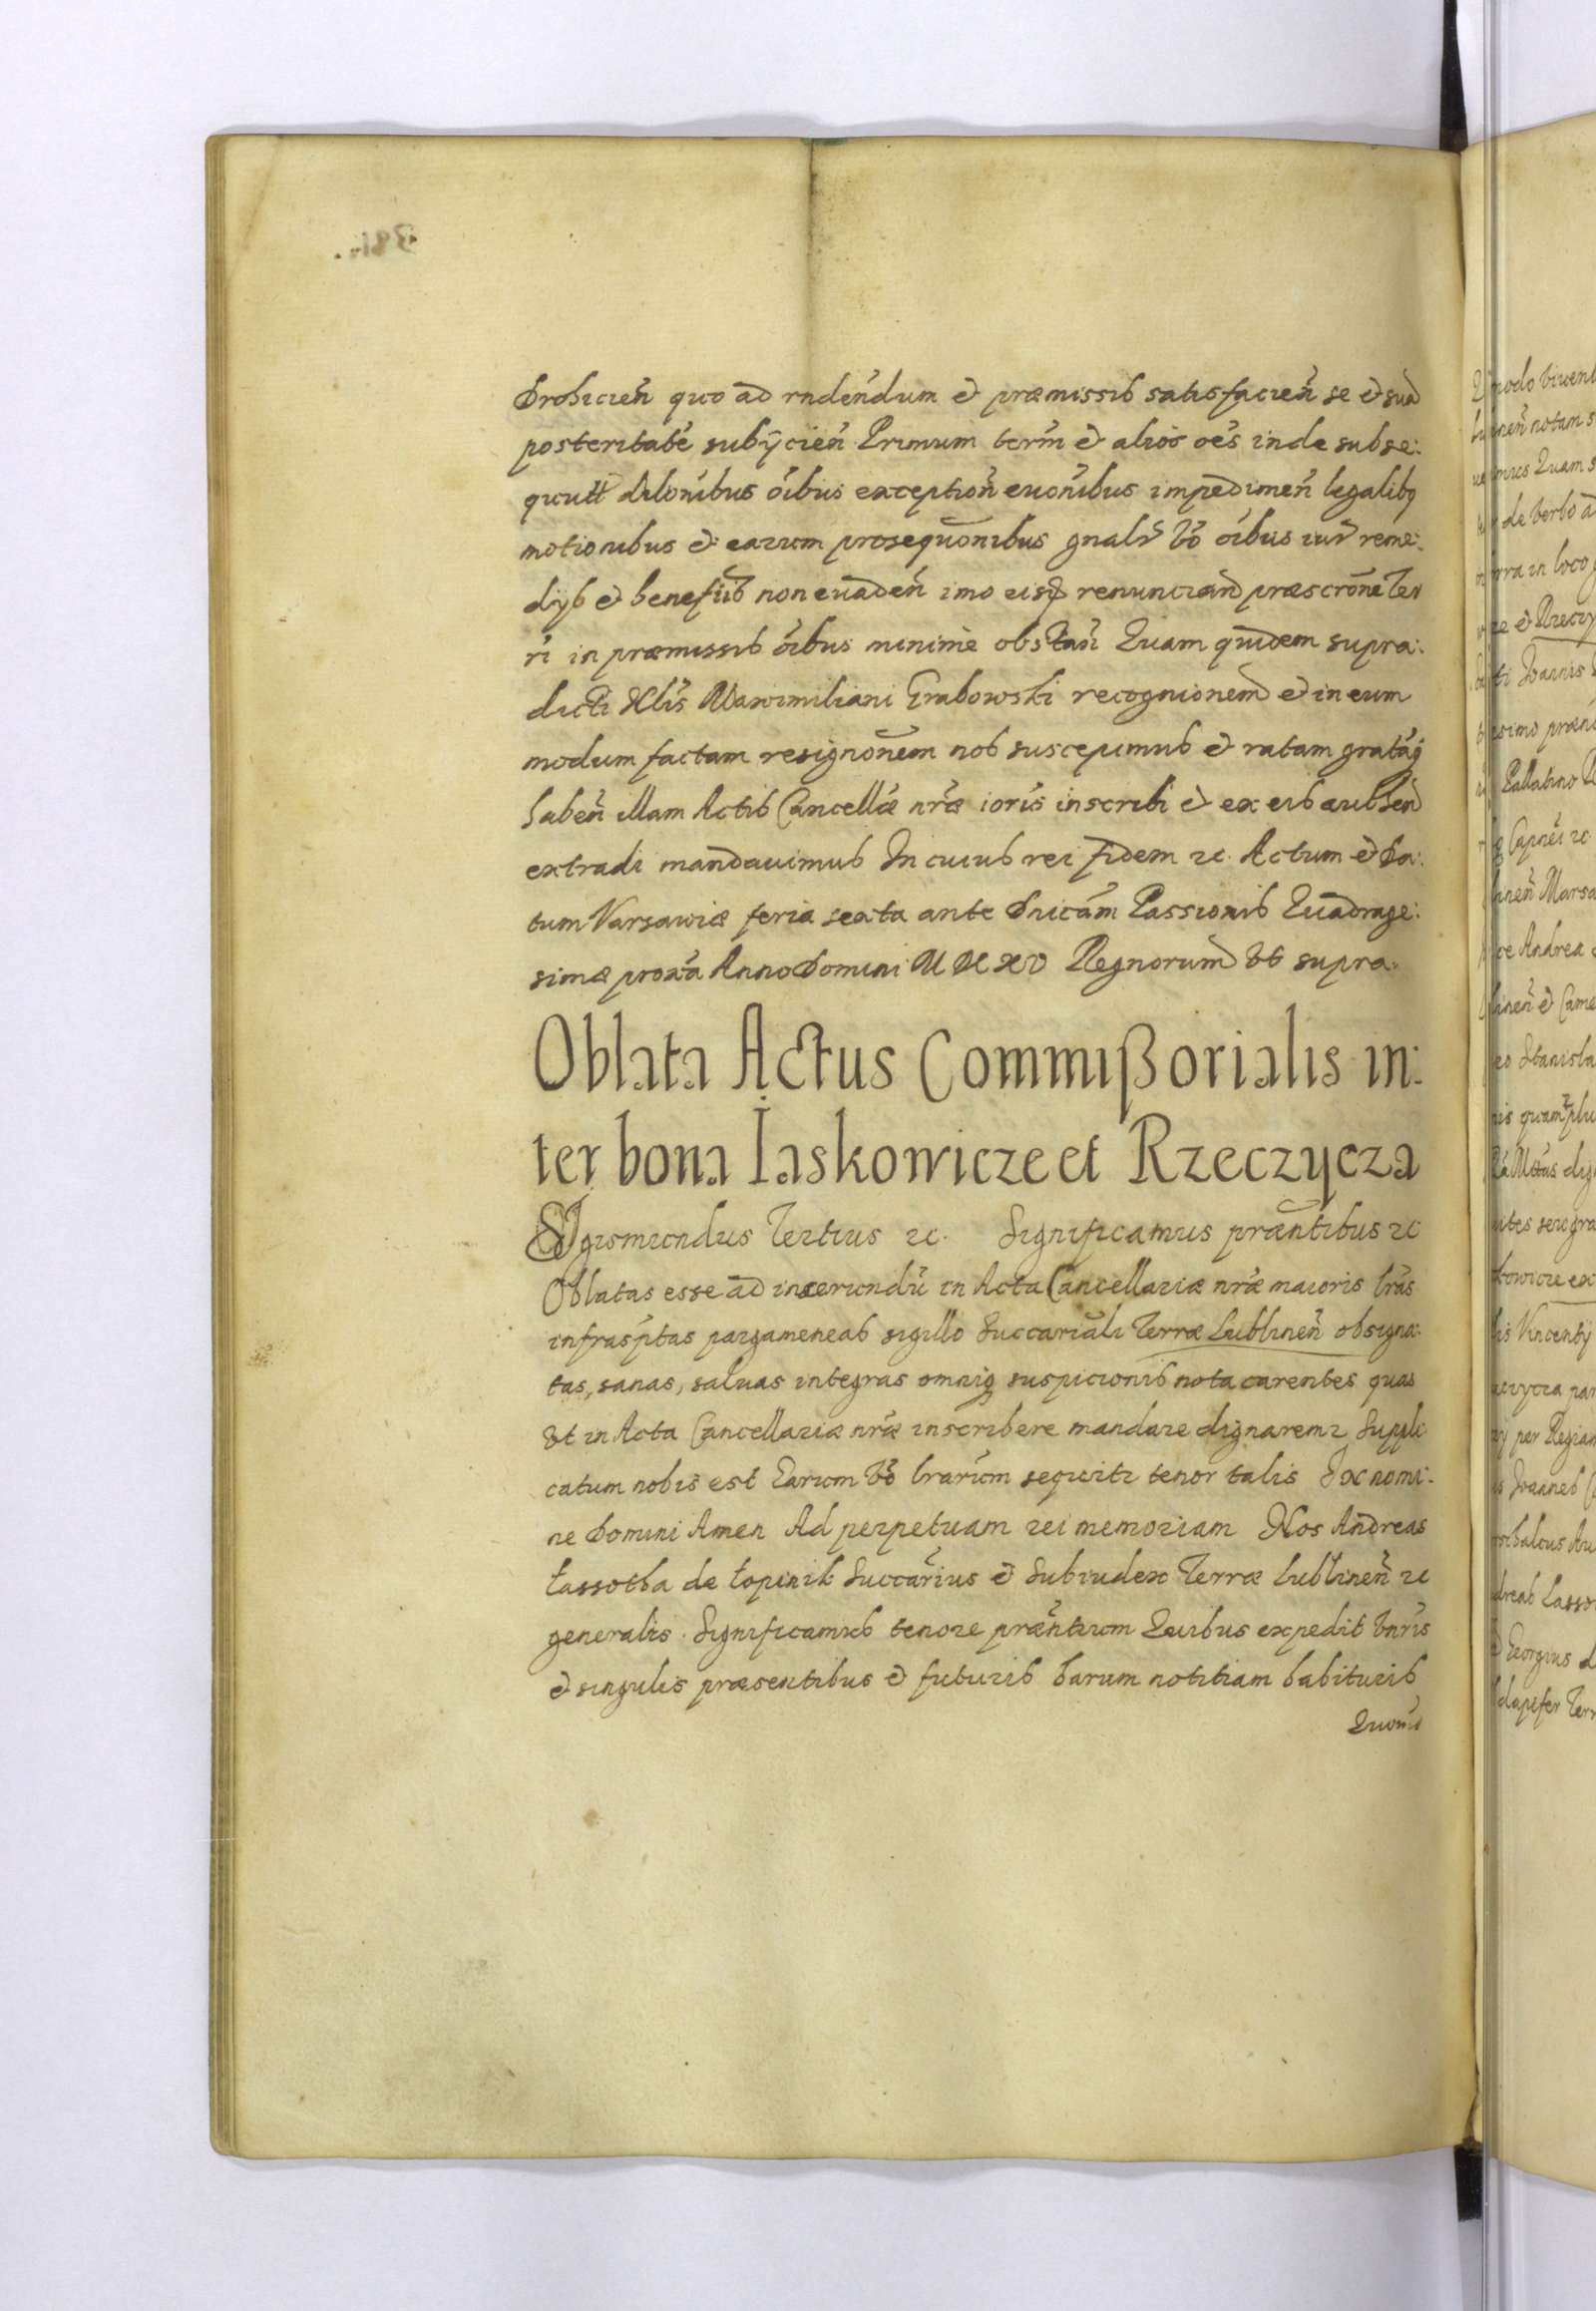 Drohicień quo ad rndendum et præmissis satisfacień se et suā
posteritatē subijcień Primum term̄ et alios oēs inde subse:
quuť dilonibus oībus exceptioñ euonibus impedimeñ legalibq
motionibus et earum prosequōnibus gnalr vō oībus iur reme:
dijs et benefiis non euadeñ imo eisq renunciañ præscrōne Ter
ri in præmissis oībus minime obstañ Quam quidem supra:
dicti Nlis Maximiliani Grabowski recognionem et in eum
modum factam resignōnem nos suscepimus et ratam gratāq
habeñ illam Actis Cancellæ nræ ioris inscribi et ex eis authen
extradi mandauimus In cuius rei fidem zc. Actum et Da:
tum Varsawiæ feria sexta ante Dnicam Passionis Quadrage:
simæ proxa Anno Domini M DC XV Regnorum Vt supra.
Oblata Actus Commißorialis in:
ter bona Iaskowicze et Rzeczycza
Sigismundus Tertius zc. Significamus præntibus zc
Oblatas esse ad inserundū in Acta Cancellariæ nræ maioris lras
infrasptas pargameneas sigillo Succariali Terræ Lublineñ obsigna:
tas, sanas, saluas integras omniq suspicionis nota carentes quas
Vt in Acta Cancellariæ nræ inscribere mandare dignaremr Suppli
catum nobis est Earum vō lrarum sequitr tenor talis In nomi:
ne Domini Amen Ad perpetuam rei memoriam Nos Andreas
Łassotha de Łopinik Succarius et Subiudex Terræ Lublineñ zc
generalis. Significamus tenore præntium Quibus expedit Vnris
et singulis præsentibus et futuris harum notitiam habituris
Quomō